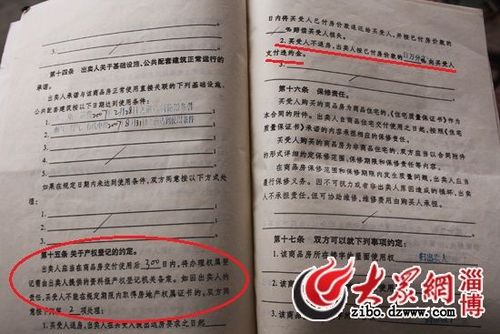 第十四条 出卖人关于基础设施、公共配套建筑正常运行的
承诺。
出卖人承诺与该商品房正常使用直接关联的下列基础设施、
公共配套建筑按以下日期达到使用条件:
1.
2007
2.
2007
3.
4.
5.
如果在规定日期内未达到使用条件,双方同意按以下方式处
理:
1.
2.
3.
第十五条 关于产权登记的约定。
出卖人应当在商品房交付使用后300日内,将办理权属登
记需由出卖人提供的资料报产权登记机关备案。如因出卖人的
责任,买受人不能在规定期限内取得房地产权属证书的,双方同
意按下列第2项处理:
1.买受人退房,出卖人在买受人提出退房要求之日起
日内将买受人已付房价款退还给买受人,并按已付房价款的
%赔偿买受人损失。
2.买受人不退房,出卖人按已付房价款的 向买受人
支付违约金。
3.
第十六条 保修责任。
买受人购买的商品房为商品住宅的,《住宅质量保证书》作为
本合同的附件。出卖人自商品住宅交付使用之日起,按照《住宅
质量保证书》承诺的内容承担相应的保修责任。
买受人购买的商品房为非商品住宅的,双方应当以合同附件
的形式详细约定保修范围、保修期限和保修责任等内容。
在商品房保修范围和保修期限内发生质量问题,出卖人应当
履行保修义务。因不可抗力或者非出卖人原因造成的损坏,出卖
人不承担责任,但可协助维修,维修费用由购买人承担。
第十七条 双方可以就下列事项约定:
1.该商品房所在楼宇的屋面使用权
2.该商品房所在
3.该商
4.
大众网 淄博